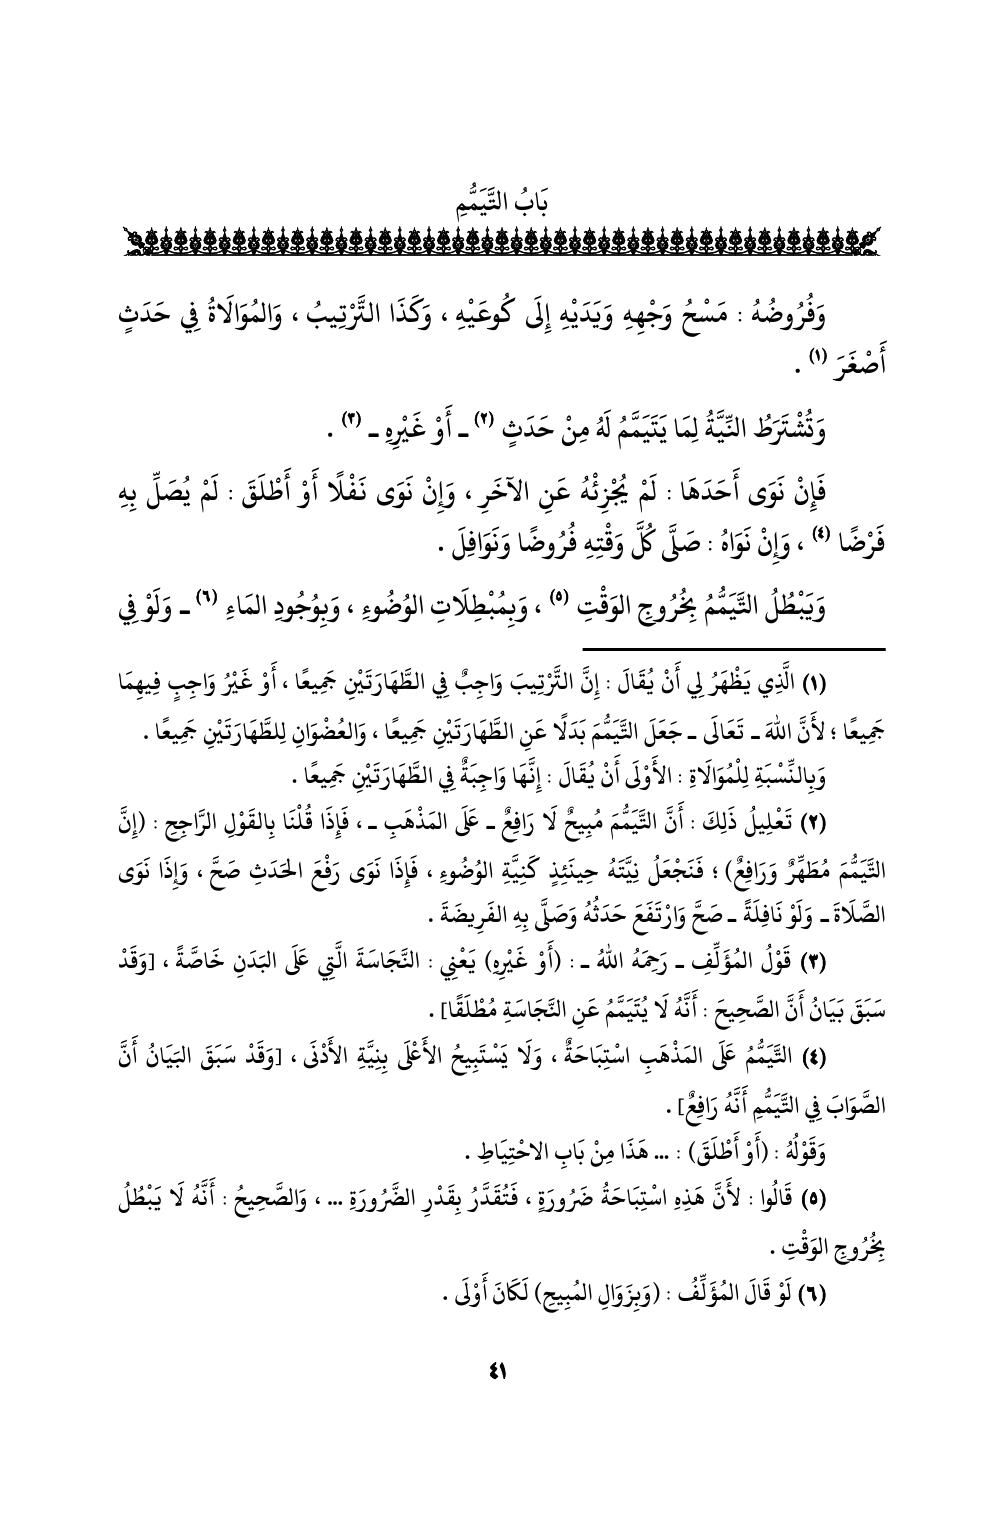 بَابُ التَّيَمُّمِ
وَفُرُوضُهُ : مَسْحُ وَجْهِهِ وَيَدَيْهِ إِلَى كُوعَيْهِ ، وَكَذَا التَّرْتِيبُ ، وَالمُوَالَاةُ فِي حَدَثٍ
أَصْغَرَ (١) .
وَتُشْتَرَطُ النِّيَّةُ لِمَا يَتَيَمَّمُ لَهُ مِنْ حَدَثٍ (٢) ـ أَوْ غَيْرِهِ ـ (٣) .
فَإِنْ نَوَى أَحَدَهَا : لَمْ يُجْزِئْهُ عَنِ الآخَرِ ، وَإِنْ نَوَى نَفْلًا أَوْ أَطْلَقَ : لَمْ يُصَلِّ بِهِ
فَرْضًا (٤) ، وَإِنْ نَوَاهُ : صَلَّى كُلَّ وَقْتِهِ فُرُوضًا وَنَوَافِلَ .
وَيَبْطُلُ التَّيَمُّمُ بِخُرُوجِ الوَقْتِ (٥) ، وَبِمُبْطِلَاتِ الوُضُوءِ ، وَبِوُجُودِ المَاءِ (٦) ـ وَلَوْ فِي
(١) الَّذِي يَظْهَرُ لِي أَنْ يُقَالَ : إِنَّ التَّرْتِيبَ وَاجِبٌ فِي الطَّهَارَتَيْنِ جَمِيعًا ، أَوْ غَيْرُ وَاجِبٍ فِيهِمَا
جَمِيعًا ؛ لأَنَّ اللهَ ـ تَعَالَى ـ جَعَلَ التَّيَمُّمَ بَدَلًا عَنِ الطَّهَارَتَيْنِ جَمِيعًا ، وَالعُضْوَانِ لِلطَّهَارَتَيْنِ جَمِيعًا .
وَبِالنِّسْبَةِ لِلْمُوَالَاةِ : الأَوْلَى أَنْ يُقَالَ : إِنَّهَا وَاجِبَةٌ فِي الطَّهَارَتَيْنِ جَمِيعًا .
(٢) تَعْلِيلُ ذَلِكَ : أَنَّ التَّيَمُّمَ مُبِيحٌ لَا رَافِعٌ ـ عَلَى المَذْهَبِ ـ ، فَإِذَا قُلْنَا بِالقَوْلِ الرَّاجِحِ : (إِنَّ
التَّيَمُّمَ مُطَهِّرٌ وَرَافِعٌ) ؛ فَنَجْعَلُ نِيَّتَهُ حِينَئِذٍ كَنِيَّةِ الوُضُوءِ ، فَإِذَا نَوَى رَفْعَ الحَدَثِ صَحَّ ، وَإِذَا نَوَى
الصَّلَاةَ ـ وَلَوْ نَافِلَةً ـ صَحَّ وَارْتَفَعَ حَدَثُهُ وَصَلَّى بِهِ الفَرِيضَةَ .
(٣) قَوْلُ المُؤَلِّفِ ـ رَحِمَهُ اللهُ ـ : (أَوْ غَيْرِهِ) يَعْنِي : النَّجَاسَةَ الَّتِي عَلَى البَدَنِ خَاصَّةً ، [وَقَدْ
سَبَقَ بَيَانُ أَنَّ الصَّحِيحَ : أَنَّهُ لَا يُتَيَمَّمُ عَنِ النَّجَاسَةِ مُطْلَقًا] .
(٤) التَّيَمُّمُ عَلَى المَذْهَبِ اسْتِبَاحَةٌ ، وَلَا يَسْتَبِيحُ الأَعْلَى بِنِيَّةِ الأَدْنَى ، [وَقَدْ سَبَقَ البَيَانُ أَنَّ
الصَّوَابَ فِي التَّيَمُّمِ أَنَّهُ رَافِعٌ] .
وَقَوْلُهُ : (أَوْ أَطْلَقَ) : ... هَذَا مِنْ بَابِ الاحْتِيَاطِ .
(٥) قَالُوا : لأَنَّ هَذِهِ اسْتِبَاحَةُ ضَرُورَةٍ ، فَتُقَدَّرُ بِقَدْرِ الضَّرُورَةِ ... ، وَالصَّحِيحُ : أَنَّهُ لَا يَبْطُلُ
بِخُرُوجِ الوَقْتِ .
(٦) لَوْ قَالَ المُؤَلِّفُ : (وَبِزَوَالِ المُبِيحِ) لَكَانَ أَوْلَى .
٤١